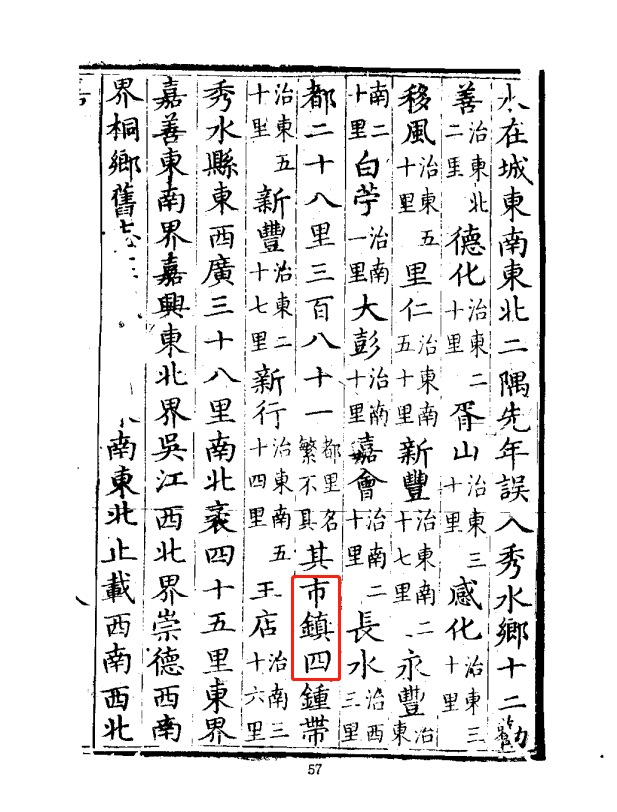 水在城東南東北二隅先年誤入秀水鄉十二勤
善治東北二里德化治東二十里胥山治東三十里感化治東三十里
移風治東五十里里仁治東南五十里新豐治東南二十七里永豐治東
南二十里白苧治南一里大彭治南十里嘉會治南二十里長水治西三里
都二十八里三百八十一都里名繁不具其市鎮四鍾帶
治東五十里新豐治東二十七里新行治東南五十四里王店治南三十六里
秀水縣東西廣三十八里南北袤四十五里東界
嘉善東南界嘉興東北界吳江西北界崇德西南
界桐鄉舊志南東北止載西南西北
57